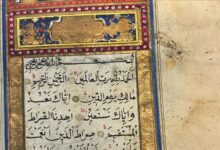 الحمد لله رب العالمين الرحمن الرحيم
مالك يوم الدين إياك نعبد
وإياك نستعين اهدنا الصراط
المستقيم صراط الذين أنعمت